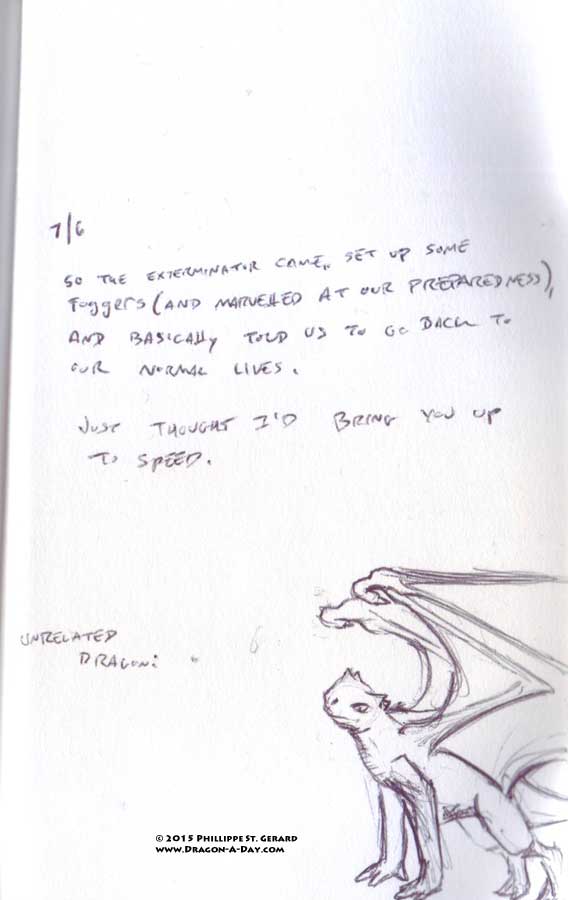 7/6
SO THE EXTERMINATOR CAME, SET UP SOME
FOGGERS (AND MARVELLED AT OUR PREPAREDNESS),
AND BASICALLY TOLD US TO GO BACK TO
OUR NORMAL LIVES.
JUST THOUGHT I'D BRING YOU UP
TO SPEED.
UNRELATED
DRAGON:
© 2015 PHILLIPPE ST. GERARD
WWW.DRAGON-A-DAY.COM